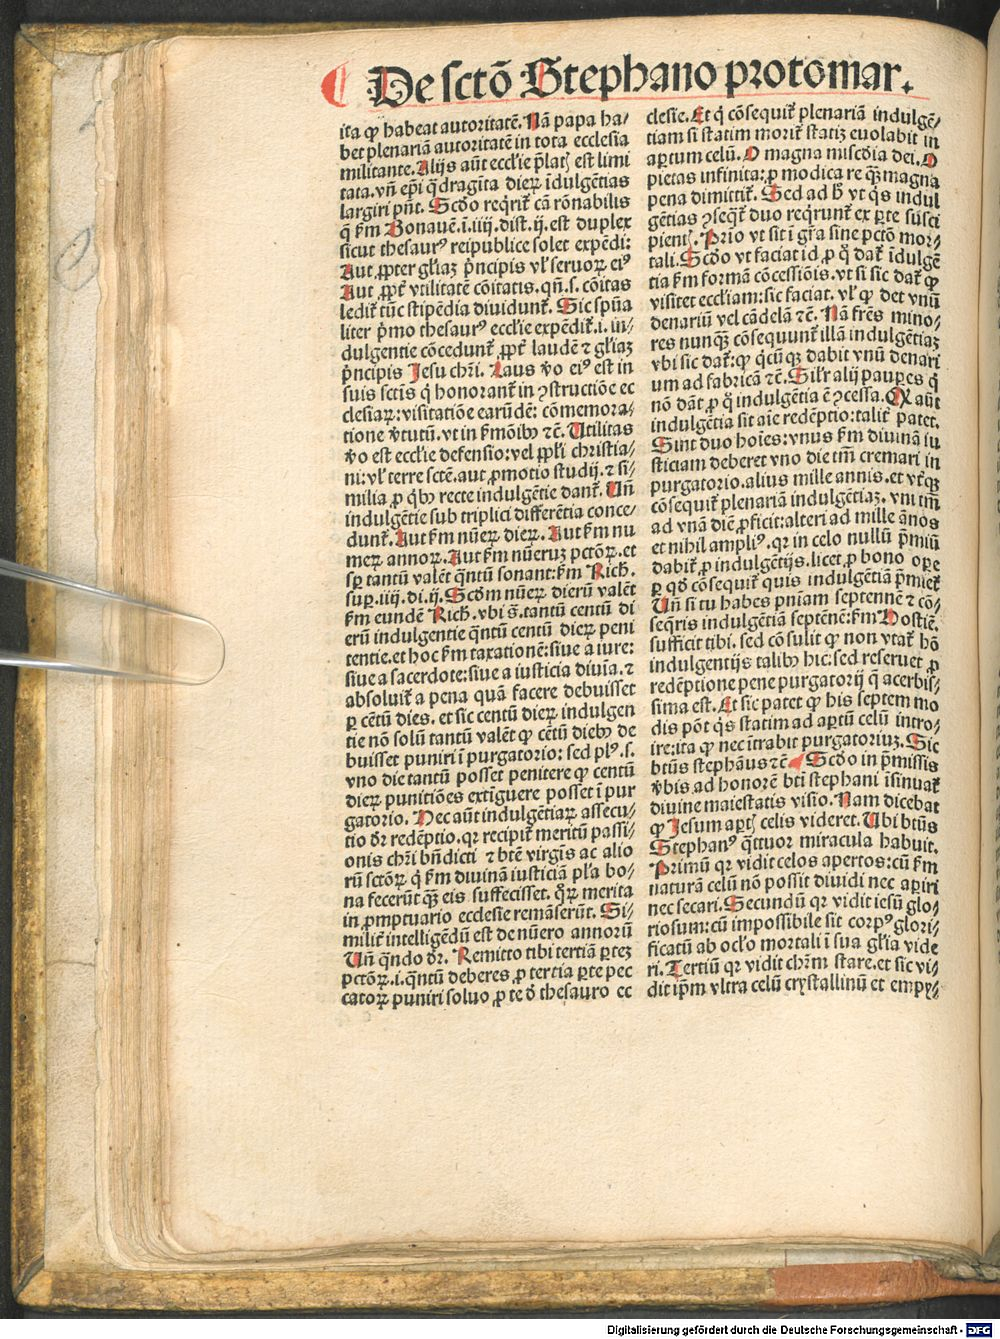 De sctō Stephano protomar.
ita ꝙ habeat autoritatē. Nā papa ha-
bet plenariā autoritatē in tota ecclesia
militante. Alijs aūt eccl'ie p̄latꝭ est limi
tata. vn̄ ep̄i q̄dragīta dieꝝ īdulgētias
largiri pn̄t. Scd̄o reqrit̄ cā rōnabilis
q̄ ẜm Bonauē. ī. iiii. dist. ij. est duplex
sicut thesaurꝰ reipublice solet expēdi:
Aut ꝓpter gl'iaz pͥncipis vl' seruoꝝ eiꝰ
Aut ꝓpt̄ vtilitatē cōitatis. qn̄. s. cōitas
ledit̄ tūc stipēdia diuidunt̄. Sic spūa
liter pͥmo thesaurꝰ eccl'ie expēdit̄. i. in-
dulgentie cōcedunt̄ ꝓpt̄ laudē ⁊ gl'iaz
pͥncipis Jesu chr̄i. Laus ꝟo eiꝰ est in
suis sctīs qͥ honorant̄ in ꝯstructiōe ec
clesiaꝝ: visitatiōe earūdē: cōmemora-
tione ꝟtutū. vt in ẜmōibꝰ ⁊c̄. Utilitas
ꝟo est eccl'ie defensio: vel ppl'i christia-
ni: vl' terre sctē. aut ꝓmotio studij. ⁊ si-
milia ꝓ qͥbꝰ recte indulgētie dant̄. Un̄
indulgētie sub triplici differētia conce-
dunt̄. Aut ẜm nūeꝝ dieꝝ. Aut ẜm nu
meꝝ annoꝝ. Aut ẜm nūeruz pctōꝝ. et
sꝑ tantū valēt q̄ntū sonant: ẜm Rich.
suꝑ. iiij. di. ij. Scd̄m nūeꝝ dierū valēt
ẜm eundē Rich. vbi s̄. tantū centū di
erū indulgentie q̄ntū centū dieꝝ peni
tentie. et hoc ẜm taxationē: siue a iure:
siue a sacerdote: siue a iusticia diuīa. ⁊
absoluit̄ a pena quā facere debuisset
ꝑ cētū dies. et sic centū dieꝝ indulgen
tie nō solū tantū valēt ꝙ cētū diebꝰ de
buisset puniri ī purgatorio: sed plꝰ. s.
vno die tantū posset penitere ꝙ centū
dieꝝ punitiōes extīguere posset ī pur
gatorio. Nec aūt indulgētiaꝝ assecu-
tio dr̄ redēptio. qꝛ recipit̄ meritū passi-
onis chr̄i bn̄dicti ⁊ btē virgīs ac alio
rū sctōꝝ qͥ ẜm diuinā iusticiā pl'a bo-
na fecerūt qꝫ eis suffecisset. qͦꝝ merita
in ꝓmptuario ecclesie remāserūt. Si-
milit̄ intelligēdū est de nūero annorū
Un̄ q̄ndo dr̄. Remitto tibi tertiā ꝑtez
pctōꝝ. i. q̄ntū deberes ꝓ tertia ꝑte pec
catoꝝ puniri soluo ꝓ te d̄ thesauro ec
clesie. Et qͥ cōsequit̄ plenariā indulgē-
tiam si statim morit̄ statiz euolabit in
aꝑtum celū. O magna misc̄dia dei. O
pietas infinita: ꝓ modica re qꝫ magna
pena dimittit̄. Sed ad h̄ vt qͥs indul
gētias ꝯseqͣt̄ duo reqrunt̄ ex ꝑte susci
pientꝭ. Prīo vt sit ī gr̄a sine pctō mor-
tali. Scd̄o vt faciat id ꝓ qͦ dat̄ īdulgē
tia ẜm formā cōcessiōis. vt si sic dat̄ ꝙ
visitet eccl'iam: sic faciat. vl' ꝙ det vnū
denariū vel cādelā ⁊c̄. Nā frēs mino-
res nunqꝫ cōsequunt̄ illā indulgētiaz
vbi sic dat̄: ꝙ qͥcūqꝫ dabit vnū denari
um ad fabricā ⁊c̄. Sil'r alij pauꝑes qͥ
nō dāt ꝓ qͦ indulgētia ē ꝯcessa. Qꝙ aūt
indulgētia sit aīe redēptio: talit̄ patet.
Sint duo hoīes: vnus ẜm diuinā iu
sticiam deberet vno die tm̄ cremari in
purgatorio. alius mille annis. et vtqꝫ
cōsequit̄ plenariā indulgētiaz. vni tm̄
ad vnā diē ꝓficit: alteri ad mille ānos
et nihil ampliꝰ. qꝛ in celo nullū p̄miū
dabit̄ ꝓ indulgētijs. licet ꝓ bono oꝑe
ꝑ qd̄ cōsequit̄ quis indulgētiā p̄miet̄
Un̄ si tu habes pn̄iam septennē ⁊ cō-
seqͥris indulgētiā septēnē: ẜm Hostiē.
sufficit tibi. sed cōsulit ꝙ non vtat̄ hō
indulgentijs talibꝰ hic: sed reseruet ꝓ
redēptione pene purgatorij q̄ acerbis-
sima est. Et sic patet ꝙ his septem mo
dis pōt qͥs statim ad aꝑtū celū intro-
ire: ita ꝙ nec ītrabit purgatoriuz. Sic
btūs stephāus ⁊c̄. Scd̄o in p̄missis
ꝟbis ad honorē btī stephani īsinuat̄
diuine maiestatis visio. Nam dicebat
ꝙ Jesum aꝑtꝭ celis videret. Ubi btūs
Stephanꝰ q̄ttuor miracula habuit.
Primū qꝛ vidit celos apertos: cū ẜm
naturā celū nō possit diuidi nec aꝑiri
nec secari. Secundū qꝛ vidit iesū glo-
riosum: cū impossibile sit corpꝰ glori-
ficatū ab ocl'o mortali ī sua gl'ia vide
ri. Tertiū qꝛ vidit chr̄m stare. et sic vi-
dit ip̄m vltra celū crystallinū et empy-
Digitalisierung gefördert durch die Deutsche Forschungsgemeinschaft - DFG